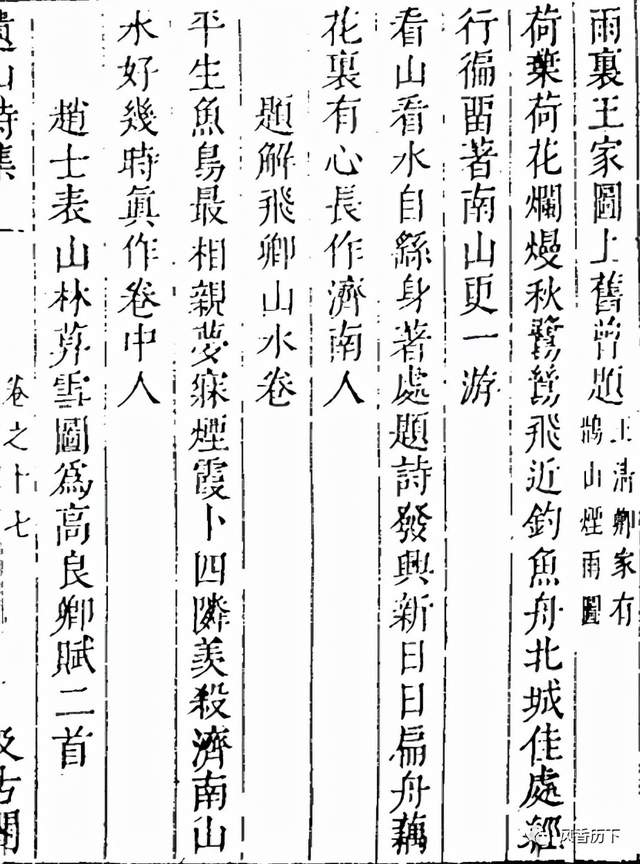 雨裏王家圖上舊曾題王淸卿家有
鵲山煙雨圖
荷葉荷花爛熳秋鷺鷥飛近釣魚舟北城佳處經
行徧畱著南山更一游
看山看水自繇身著處題詩發興新日日扁舟藕
花裏有心長作濟南人
題解飛卿山水卷
平生魚鳥最相親夢寐煙霞卜四隣羨殺濟南山
水好幾時眞作卷中人
趙士表山林莫雪圖爲高良卿賦二首
遺山詩集
卷之十七
汲古閣
风香历下